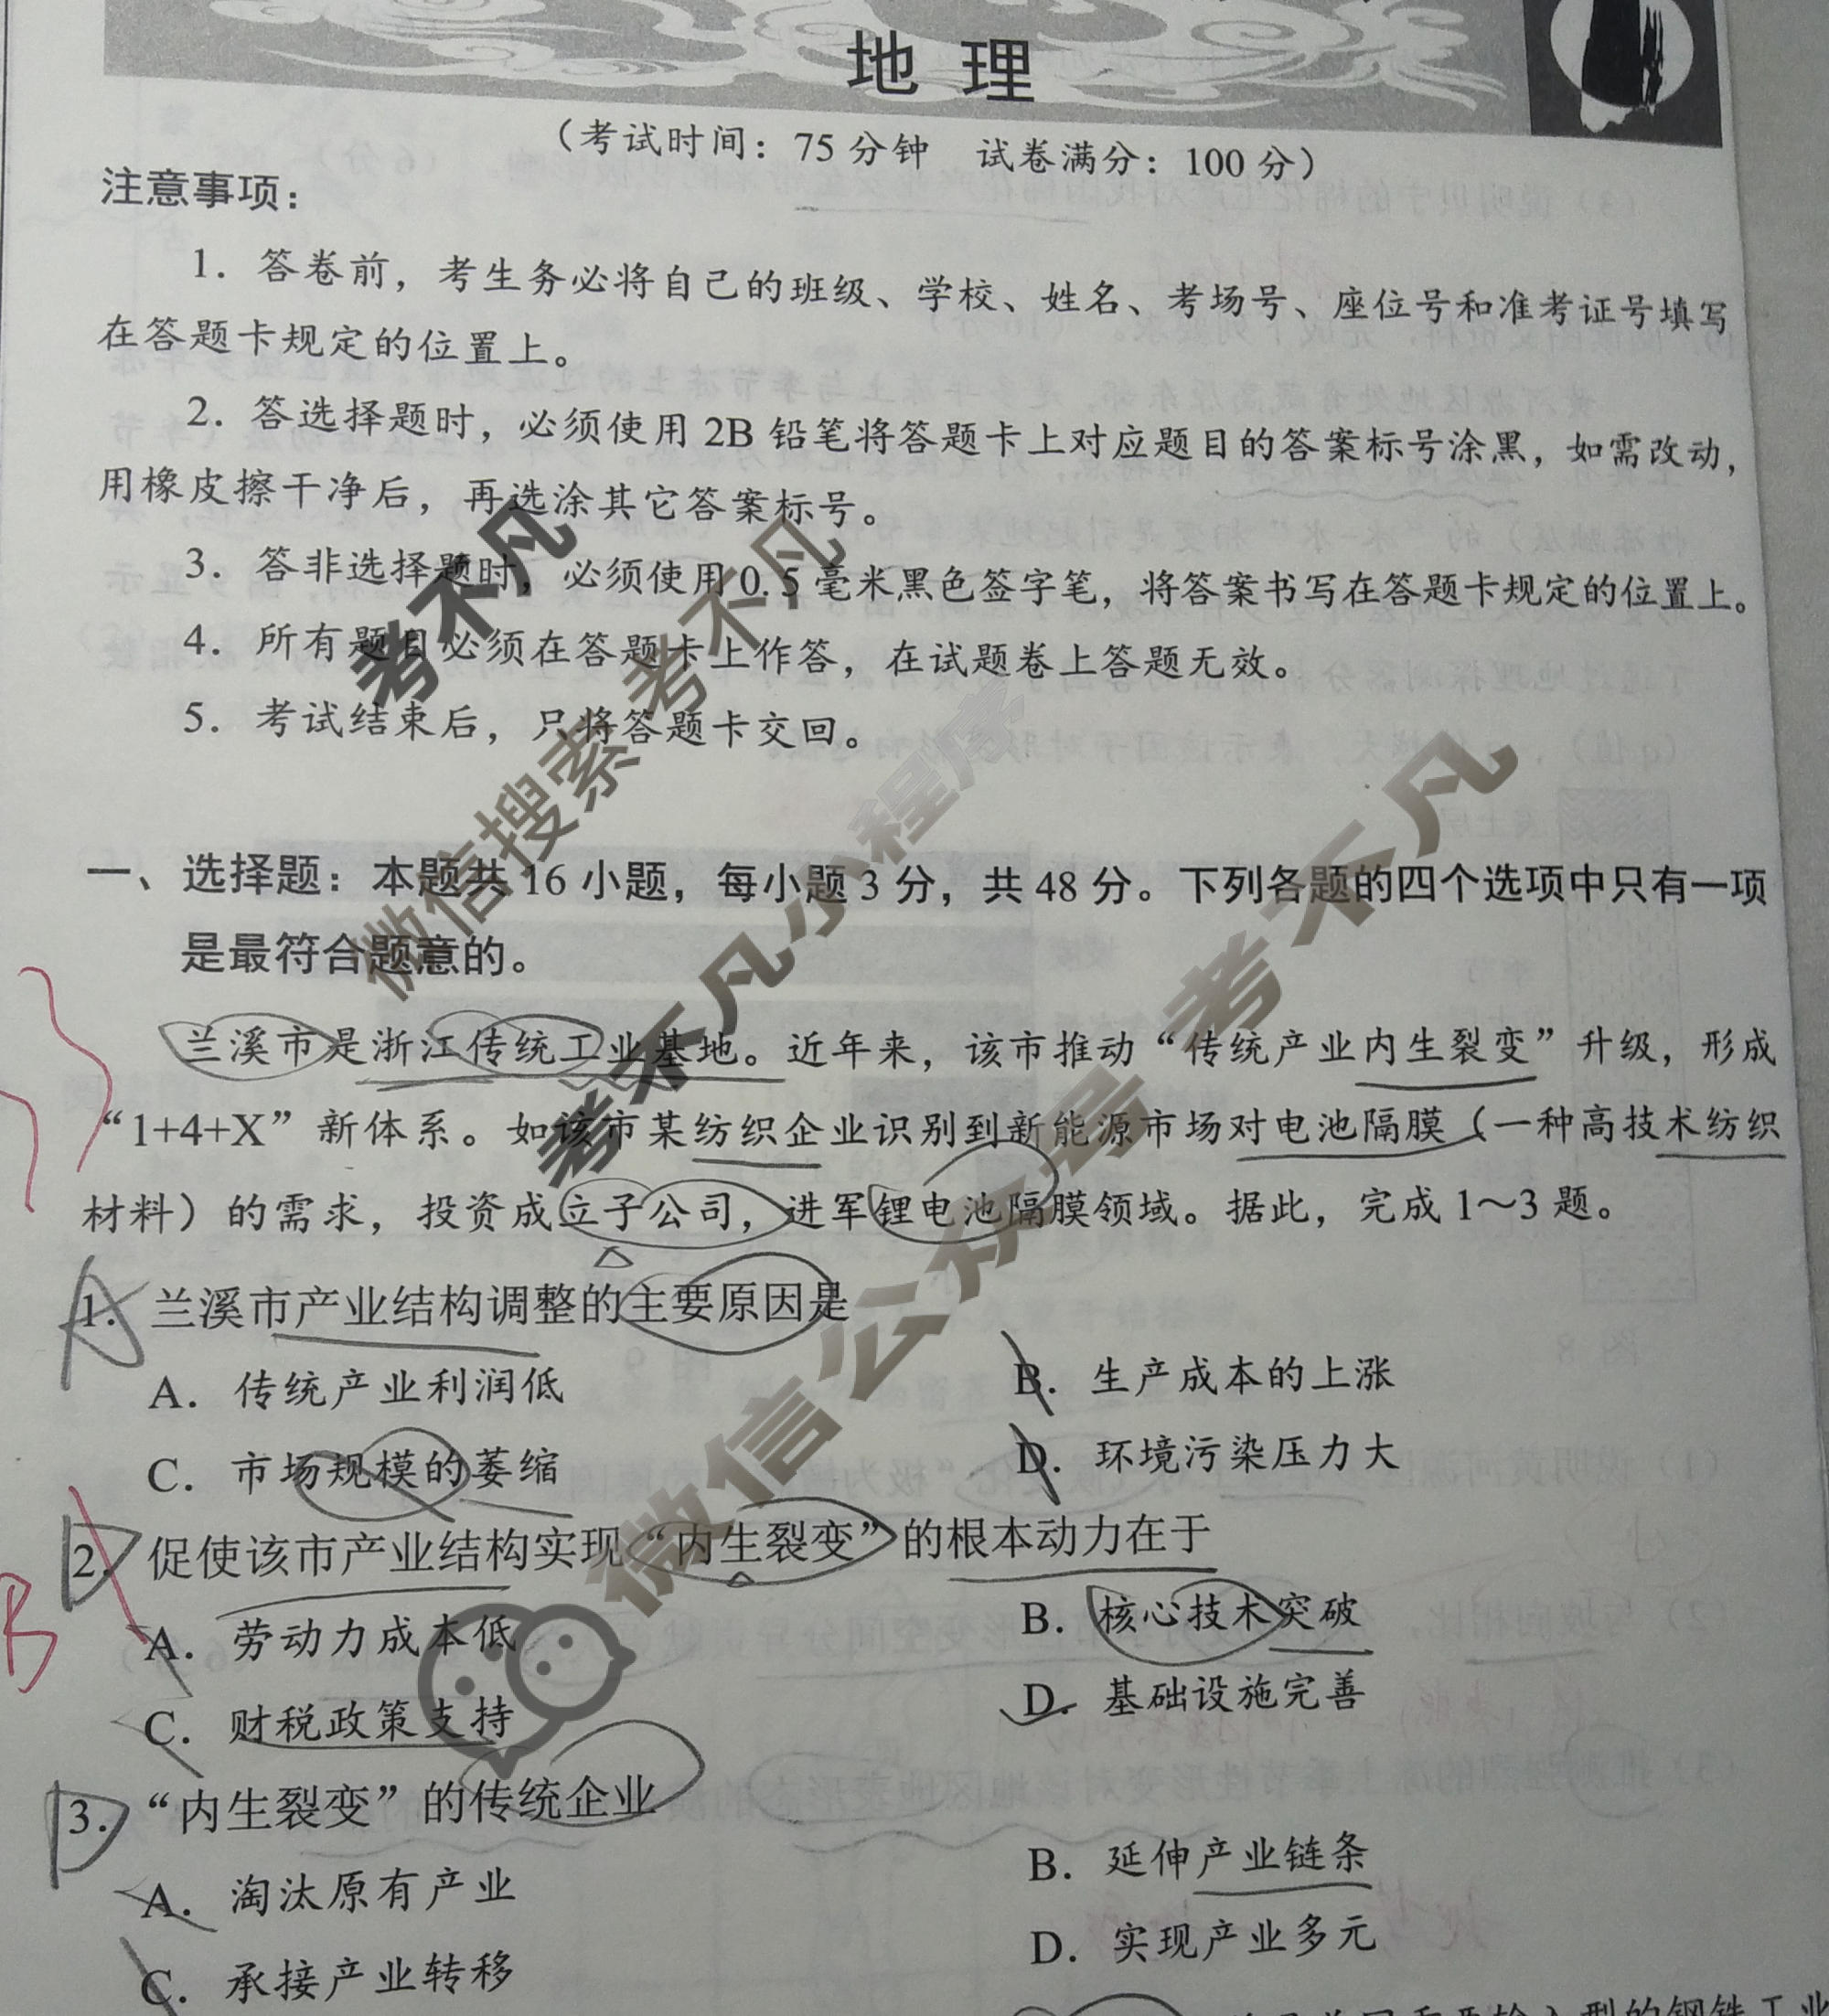 地 理
（考试时间：75 分钟 试卷满分：100 分）
注意事项：
1．答卷前，考生务必将自己的班级、学校、姓名、考场号、座位号和准考证号填写
在答题卡规定的位置上。
2．答选择题时，必须使用 2B 铅笔将答题卡上对应题目的答案标号涂黑，如需改动，
用橡皮擦干净后，再选涂其它答案标号。
3．答非选择题时，必须使用0.5 毫米黑色签字笔，将答案书写在答题卡规定的位置上。
4．所有题目必须在答题卡上作答，在试题卷上答题无效。
5．考试结束后，只将答题卡交回。
考不凡
微信搜索 考不凡
考不凡小程序
微信公众号 考不凡
一、选择题：本题共 16 小题，每小题 3 分，共 48 分。下列各题的四个选项中只有一项
是最符合题意的。
兰溪市是浙江传统工业基地。近年来，该市推动“传统产业内生裂变”升级，形成
“1+4+X”新体系。如该市某纺织企业识别到新能源市场对电池隔膜（一种高技术纺织
材料）的需求，投资成立子公司，进军锂电池隔膜领域。据此，完成 1～3 题。
A
1．兰溪市产业结构调整的主要原因是
A．传统产业利润低 B．生产成本的上涨
C．市场规模的萎缩 D．环境污染压力大
D
2．促使该市产业结构实现“内生裂变”的根本动力在于
B
A．劳动力成本低 B．核心技术突破
C．财税政策支持 D．基础设施完善
D
3．“内生裂变”的传统企业
A．淘汰原有产业 B．延伸产业链条
C．承接产业转移 D．实现产业多元